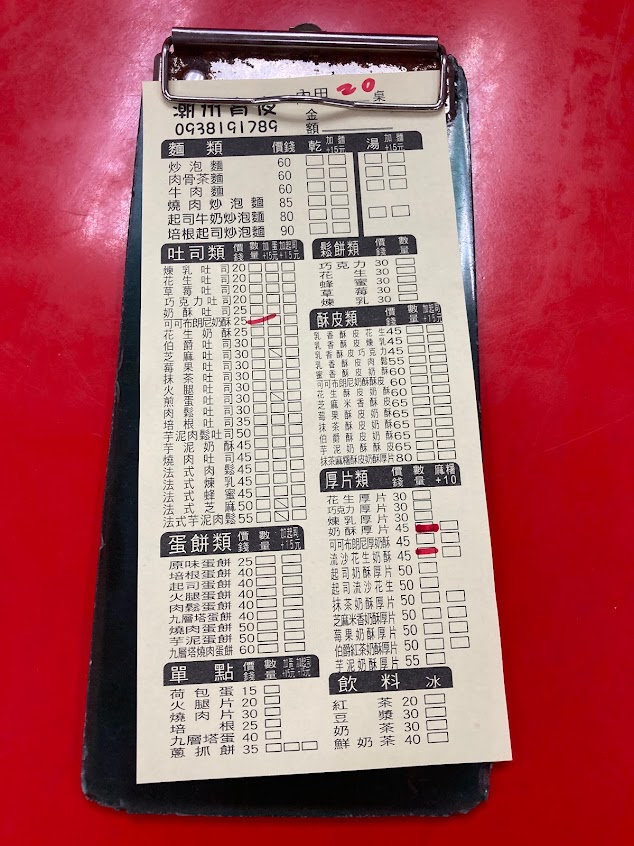 內用 20 桌
潮州宵夜
0938191789
金額
麵類 價錢 乾 加麵+15元 湯 加麵+15元
炒泡麵 60
肉骨茶麵 60
牛肉麵 60
燒肉炒泡麵 85
起司牛奶炒泡麵 80
培根起司炒泡麵 90
吐司類 價錢 數量 加蛋+15元 加起司+15元
煉乳吐司 20
花生吐司 20
草莓吐司 20
巧克力吐司 20
奶酥吐司 25
可可布朗尼奶酥 25
花生奶酥 25
伯爵吐司 30
芝麻吐司 30
莓果吐司 30
抹茶吐司 30
火腿吐司 30
煎蛋吐司 30
肉鬆吐司 30
培根吐司 35
芋泥肉鬆吐司 50
芋泥奶酥 45
燒肉吐司 45
法式肉鬆 45
法式煉乳 45
法式蜂蜜 45
法式芝麻 50
法式芋泥肉鬆 55
蛋餅類 價錢 數量 加起司+15元
原味蛋餅 25
培根蛋餅 40
起司蛋餅 40
火腿蛋餅 40
肉鬆蛋餅 40
九層塔蛋餅 40
燒肉蛋餅 50
芋泥蛋餅 50
九層塔燒肉蛋餅 60
單點 價錢 數量 加蛋+15元 加起司+15元
荷包蛋 15
火腿片 20
燒肉片 30
培根 25
九層塔蛋 40
蔥抓餅 35
鬆餅類 價錢 數量
巧克力 30
花生 30
蜂蜜 30
草莓 30
煉乳 30
酥皮類 價錢 數量 加起司+15元
乳香酥皮花生 45
乳香酥皮煉乳 45
乳香酥皮巧克力 45
乳香酥皮肉鬆 55
蜜香酥皮奶酥 60
可可布朗尼奶酥酥皮 60
花生香酥奶酥皮 60
芝麻米香奶酥皮 65
莓果酥奶酥皮 65
抹茶酥奶酥皮 65
伯爵酥奶酥皮 65
芋泥酥奶酥皮 65
抹茶麻糬酥皮奶酥厚片 80
厚片類 價錢 數量 麻糬+10
花生厚片 30
巧克力厚片 30
煉乳厚片 30
奶酥厚片 45
可可布朗尼厚奶酥 45
流沙花生奶酥 45
起司奶酥厚片 50
起司流沙花生 50
抹茶奶酥厚片 50
芝麻米香奶酥厚片 50
莓果奶酥厚片 50
伯爵紅茶奶酥厚片 50
芋泥奶酥厚片 55
飲料 冰
紅茶 20
豆漿 30
奶茶 30
鮮奶茶 40